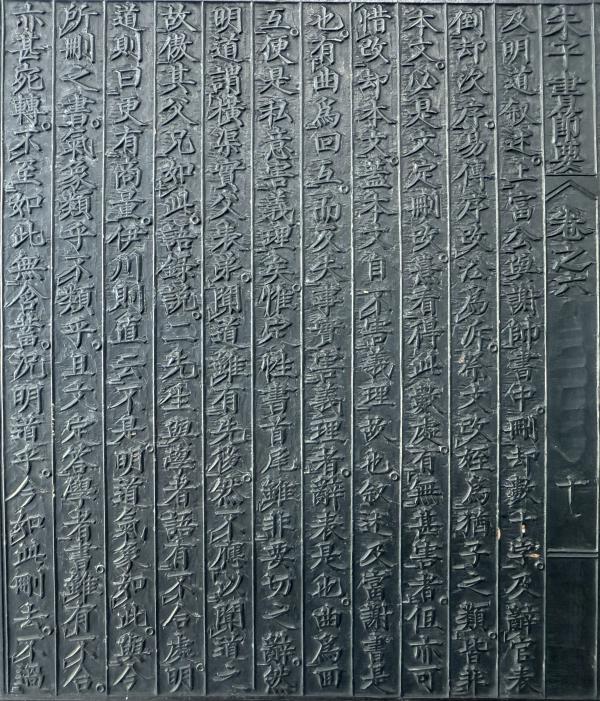 朱子書節要 卷之六 十
及明道叙述上富公與謝帥書中刪却數十字及辭官表
倒却次序易傳序改沿爲泝祭文改姪爲猶子之類皆非
本文必是文定刪改熹看得此數處有無甚害者但亦可
惜改却本文蓋本文自不害義理故也叙述及富謝書是
也有曲爲回互而反失事實害義理者辭表是也曲爲回
互便是私意害義理矣惟定性書首尾雖非要切之辭然
明道謂橫渠實父表弟聞道雖有先後然不應以聞道之
故傲其父兄如此語錄說二先生與學者語有不合處明
道則曰更有商量伊川則直云不是明道氣象如此與今
所刪之書氣象類乎不類乎且文定答學者書雖有不合
亦甚宛轉不至如此無含蓄況明道乎今如此刪去不過